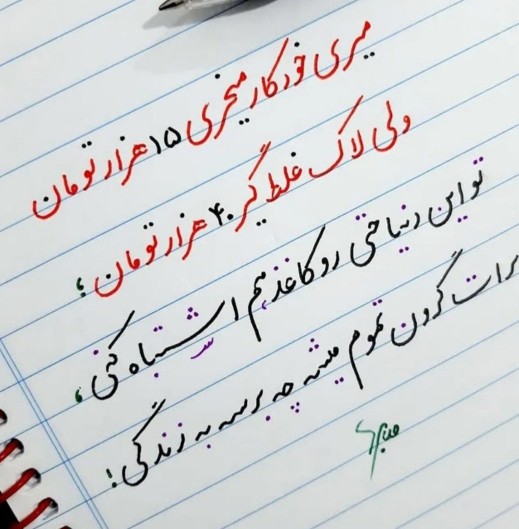 میری خودکار میخری ۱۵ هزار تومان
ولی لاک غلط گیر ۴۰ هزار تومان ؛
تو این دنیا حتی رو کاغذ هم اشتباه کنی ،
برات گرون تموم میشه چه برسه به زندگی !